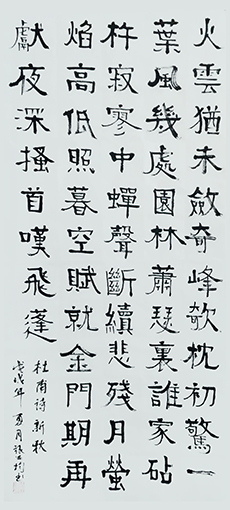 火雲猶未斂奇峰欹枕初驚一
葉風幾處園林蕭瑟裏誰家砧
杵寂寥中蟬聲斷續悲殘月螢
焰高低照暮空賦就金門期再
獻夜深搔首嘆飛蓬
杜甫詩新秋
戊戌年夏月